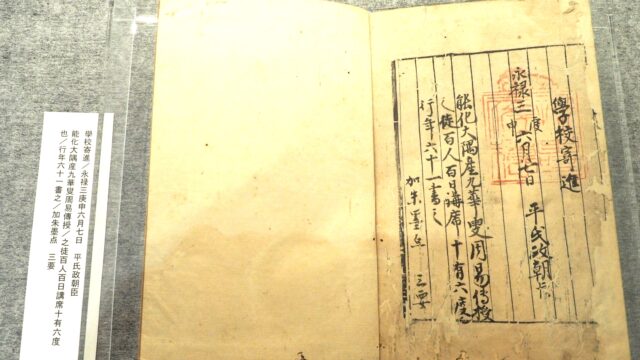 學校寄進
永禄三庚申六月七日 平氏政朝臣
能化大隅産九華叟周易傳授
之徒百人百日講席十有六度也
行年六十一書之
加朱墨点 三要
學校寄進／永禄三庚申六月七日 平氏政朝臣
能化大隅産九華叟周易傳授／之徒百人百日講席十有六度
也／行年六十一書之／加朱墨点 三要